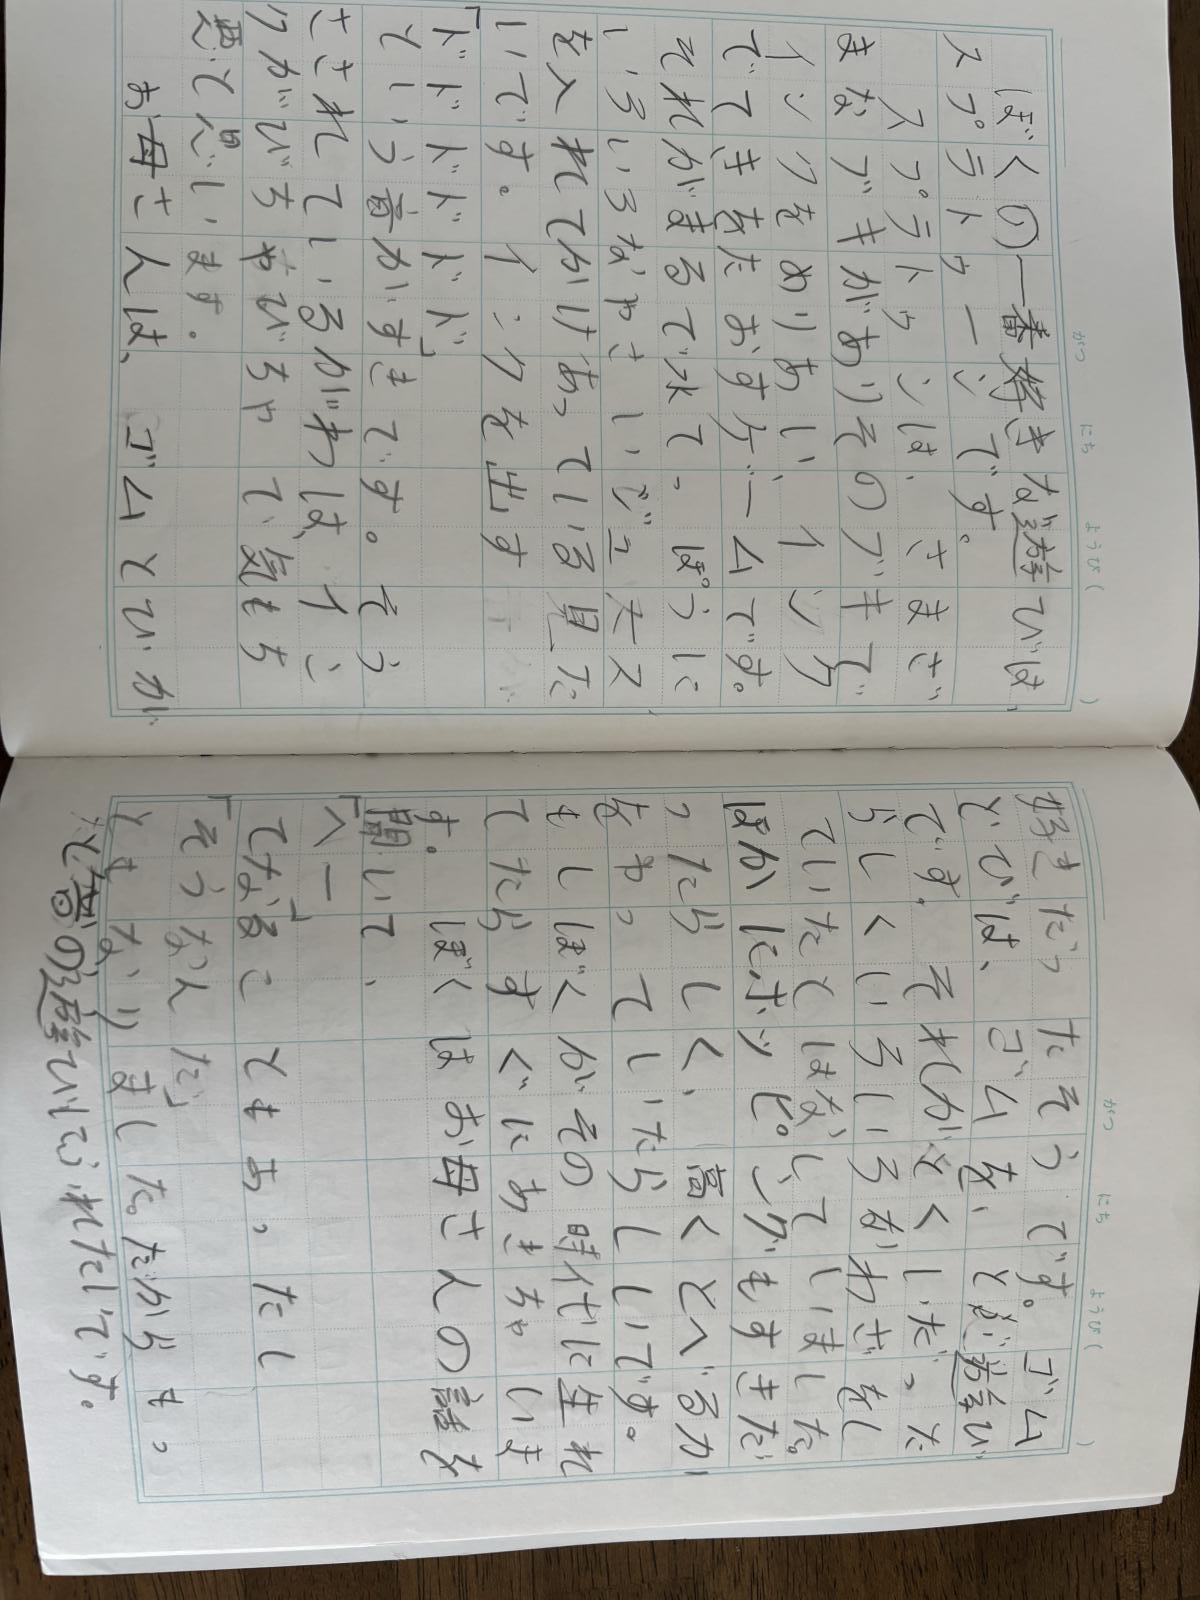 がつ にち ようび( )
ぼくの一番好きな遊びは、
スプラトゥーンです。
スプラトゥンは、さまざ
まなブキがありそのブキで
インクをぬりあい、インク
できをたおすゲームです。
それがまるで水てっぽうに
いろいろなやさいジュース
を入れてかけあっている見た
いです。インクを出す
「ドドドドドド」
という音がすきです。そう
さされているがわは、イン
クがびちゃびちゃで気もち
悪いと思います。
お母さんは、ゴムとびが
がつ にち ようび( )
好きだったそうです。ゴム
とびは、ゴムを、とぶ遊び
です。それがとくいだった
らしくいろいろなわざをし
ていたとはなしていました。
ほかにホッピングもすきだ
ったらしく、高くとべるか
をやっていたらしいです。
もしぼくがその時代に生れ
てたらすぐにあきちゃいま
す。ぼくはお母さんの話を
聞いて、
「へー」
てなることもあったし
「そうなんだ」
ともなりました。だからもっ
と昔の遊び